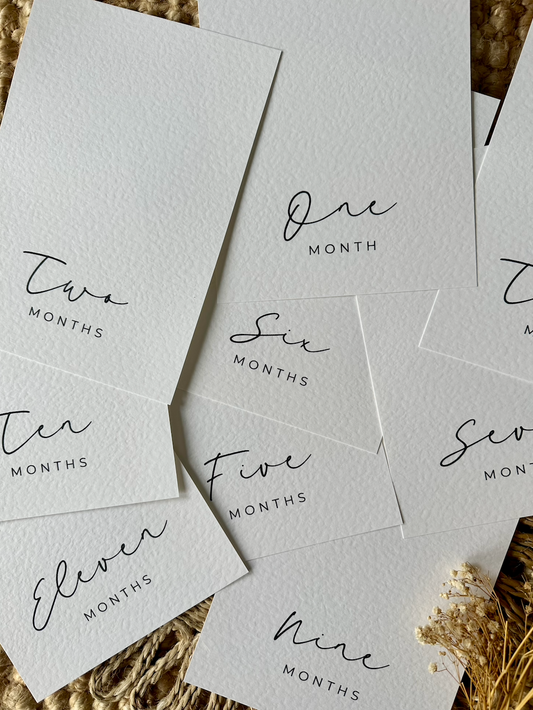 One
MONTH
Two
MONTHS
Six
MONTHS
Ten
MONTHS
Five
MONTHS
Sev
MONT
Eleven
MONTHS
Nine
MONTHS